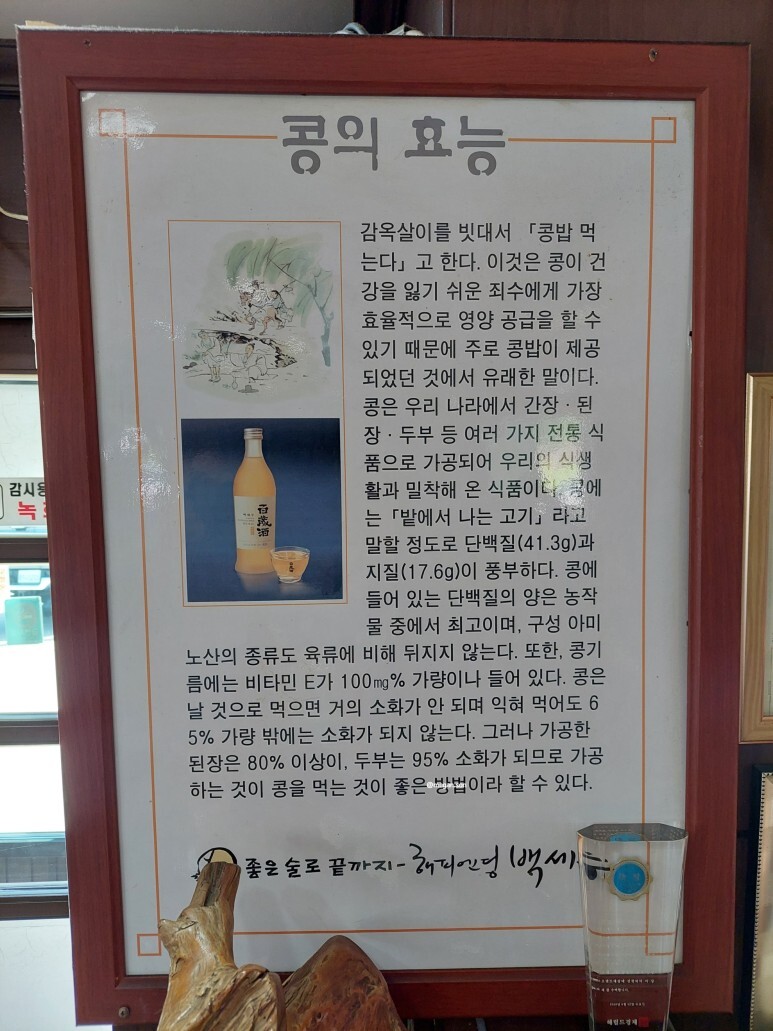 콩의 효능
감옥살이를 빗대서 「콩밥 먹
는다」고 한다. 이것은 콩이 건
강을 잃기 쉬운 죄수에게 가장
효율적으로 영양 공급을 할 수
있기 때문에 주로 콩밥이 제공
되었던 것에서 유래한 말이다.
콩은 우리 나라에서 간장·된
장·두부 등 여러 가지 전통 식
품으로 가공되어 우리의 식생
활과 밀착해 온 식품이다. 콩에
는「밭에서 나는 고기」라고
말할 정도로 단백질(41.3g)과
지질(17.6g)이 풍부하다. 콩에
들어 있는 단백질의 양은 농작
물 중에서 최고이며, 구성 아미
노산의 종류도 육류에 비해 뒤지지 않는다. 또한, 콩기
름에는 비타민 E가 100㎎% 가량이나 들어 있다. 콩은
날 것으로 먹으면 거의 소화가 안 되며 익혀 먹어도 6
5% 가량 밖에는 소화가 되지 않는다. 그러나 가공한
된장은 80% 이상이, 두부는 95% 소화가 되므로 가공
하는 것이 콩을 먹는 것이 좋은 방법이라 할 수 있다.
百歲酒
좋은 술로 끝까지 - 해피엔딩 백세
감시용
녹
헤럴드경제